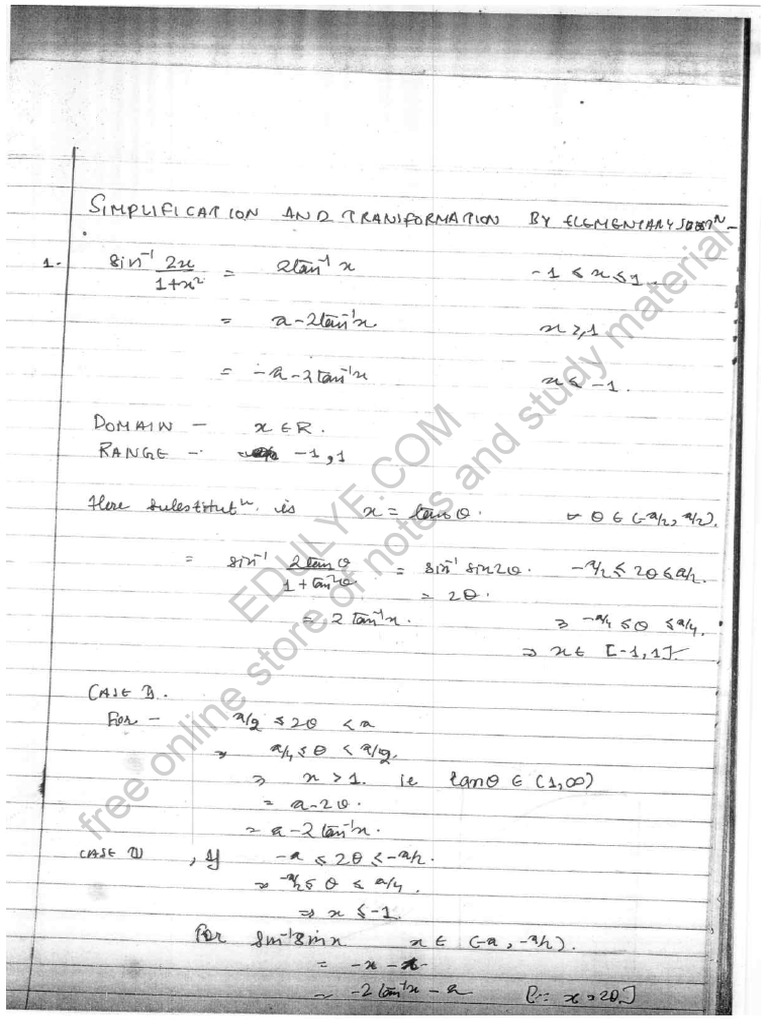 SIMPLIFICATION AND TRANSFORMATION BY ELEMENTARY
1. sin⁻¹ 2x/1+x² = 2tan⁻¹ x -1 ≤ x ≤ 1.
= π-2tan⁻¹x x ≥ 1
= -π-2tan⁻¹x x ≤ -1.
DOMAIN - x ∈ R.
RANGE - -1, 1
Here substitutⁿ. is x = tanθ. θ ∈ (-π/2, π/2).
= sin⁻¹ 2tanθ/1+tan²θ = sin⁻¹ sin2θ. -π/2 ≤ 2θ ≤ π/2.
= 2θ.
= 2 tan⁻¹x. ⇒ -π/4 ≤ θ ≤ π/4.
⇒ x ∈ [-1,1].
CASE II.
For - π/2 ≤ 2θ < π
⇒ π/4 ≤ θ < π/2.
⇒ x > 1. ie tanθ ∈ (1,∞)
= π-2θ.
= π-2tan⁻¹x.
CASE III, If -π ≤ 2θ < -π/2.
⇒ -π/2 ≤ θ ≤ π/4.
⇒ x ≤ -1.
For sin⁻¹sinx x ∈ (-π, -π/2).
= -x - π
= -2tan⁻¹x - π [∵ x = 2θ]
EDULYE.COM
free online store of notes and study material